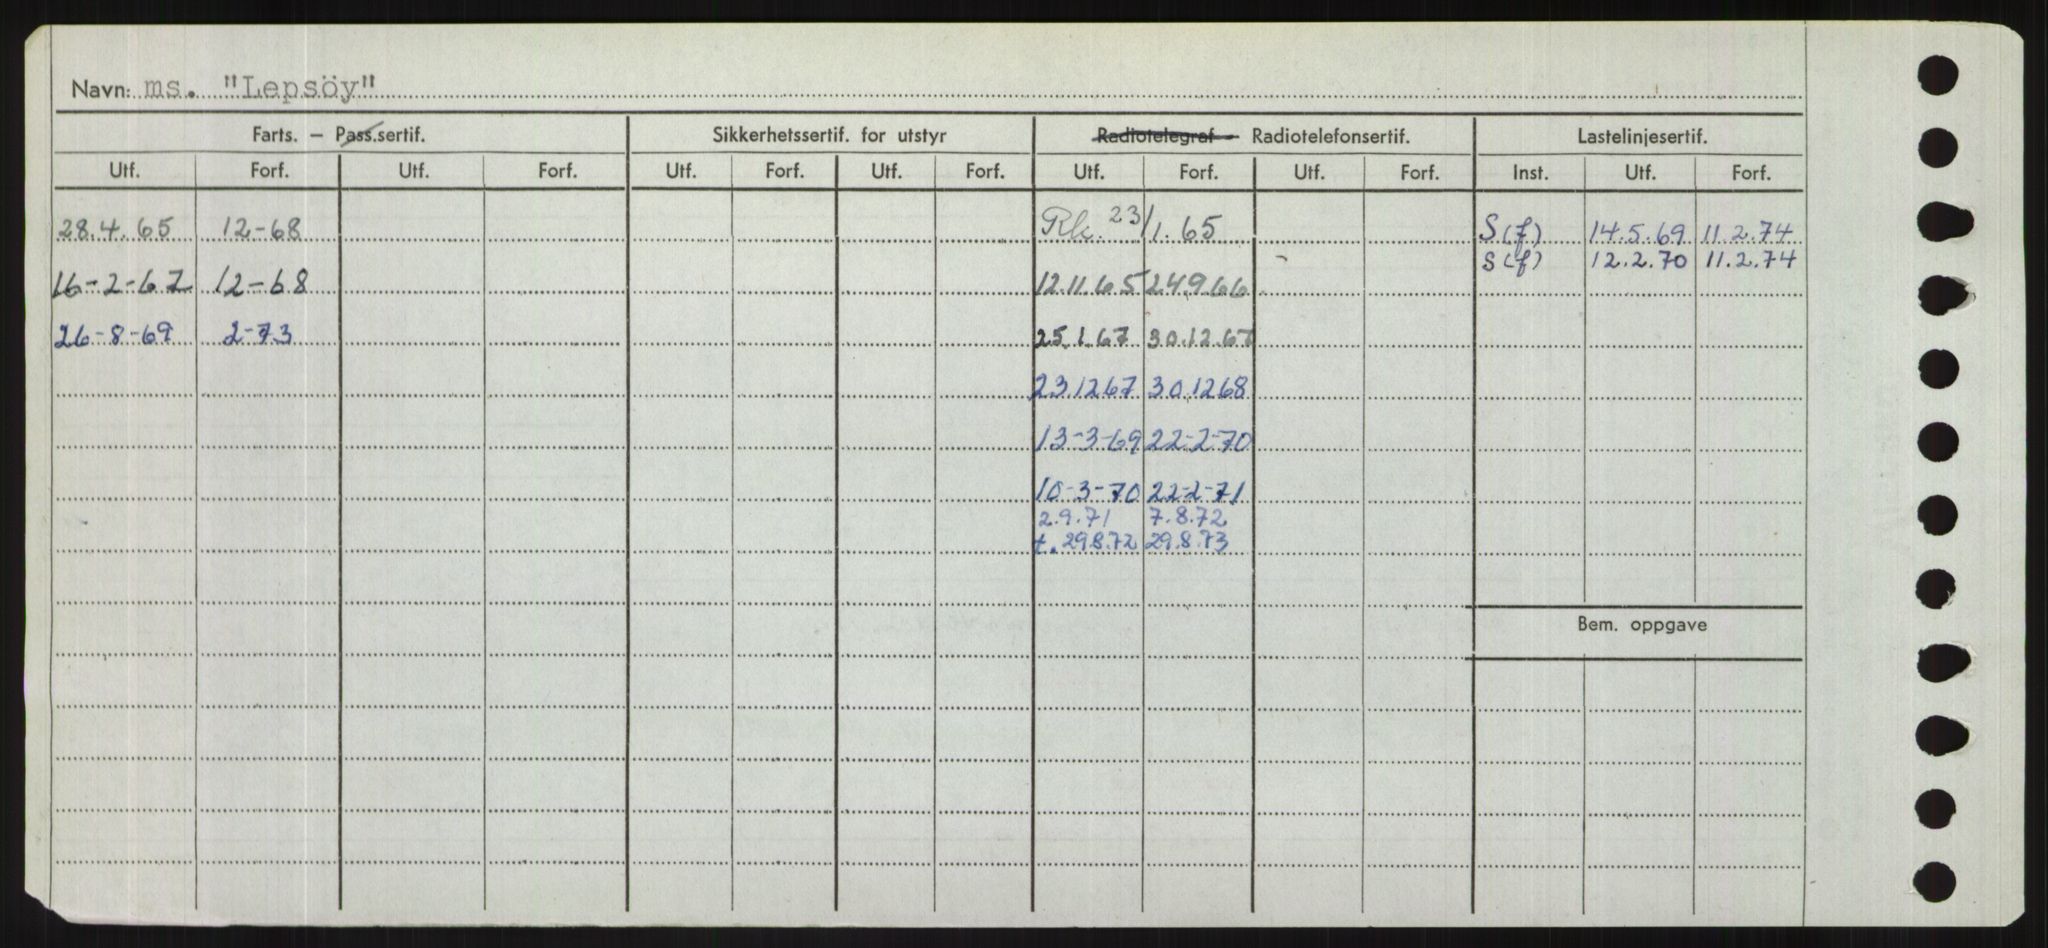 Navn: ms. "Lepsöy"
Farts. – Pass.sertif. Sikkerhetssertif. for utstyr Radiotelegraf – Radiotelefonsertif. Lastelinjesertif.
Utf. Forf. Utf. Forf. Utf. Forf. Utf. Forf. Utf. Forf. Utf. Forf. Inst. Utf. Forf.
28.4.65 12-68 Rk. 23/1.65 S(f) 14.5.69 11.2.74
S(f) 12.2.70 11.2.74
16-2-67 12-68 12.11.65 24.9.66
26-8-69 2-73 25.1.67 30.12.67
23.12.67 30.12.68
13-3-69 22-2-70
10-3-70 22-2-71
2.9.71 7.8.72
t. 29.8.72 29.8.73
Bem. oppgave